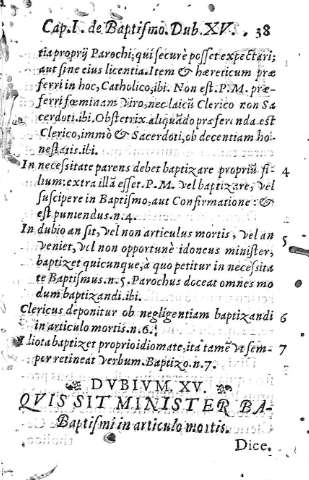 Cap. I. de Baptismo. Dub. XV. 38
tia proprij Parochi; qui securè posset expectari;
aut sine eius licentia. Item & hæreticum præ
ferri in hoc, Catholico, ibi. Non est. P. M. præ
ferri fœminam Viro, nec laicũ Clerico non Sa
cerdoti. ibi. Obstetrix aliquãdo præferẽda est
Clerico, immò & Sacerdoti, ob decentiam ho
nestatis. ibi.
In necessitate parens debet baptizare propriũ fi- 4
lium: extra illã esset. P. M. vel baptizare, vel
suscipere in Baptismo, aut Confirmatione: &
est puniendus. n. 4.
In dubio an sit, vel non articulus mortis, vel an 5
veniet, vel non opportunè idoneus minister,
baptizet quicunque, a quo petitur in necessita
te Baptismus. n. 5. Parochus doceat omnes mo
dum baptizandi. ibi.
Clericus deponitur ob negligentiam baptizandi 6
in articulo mortis. n. 6.
Idiota baptizet proprio idiomate, ita tamẽ vt sem- 7
per retineat verbum. Baptizo. n. 7.
DVBIVM. XV.
QVIS SIT MINISTER BA-
Baptismi in articulo mortis.
Dice.